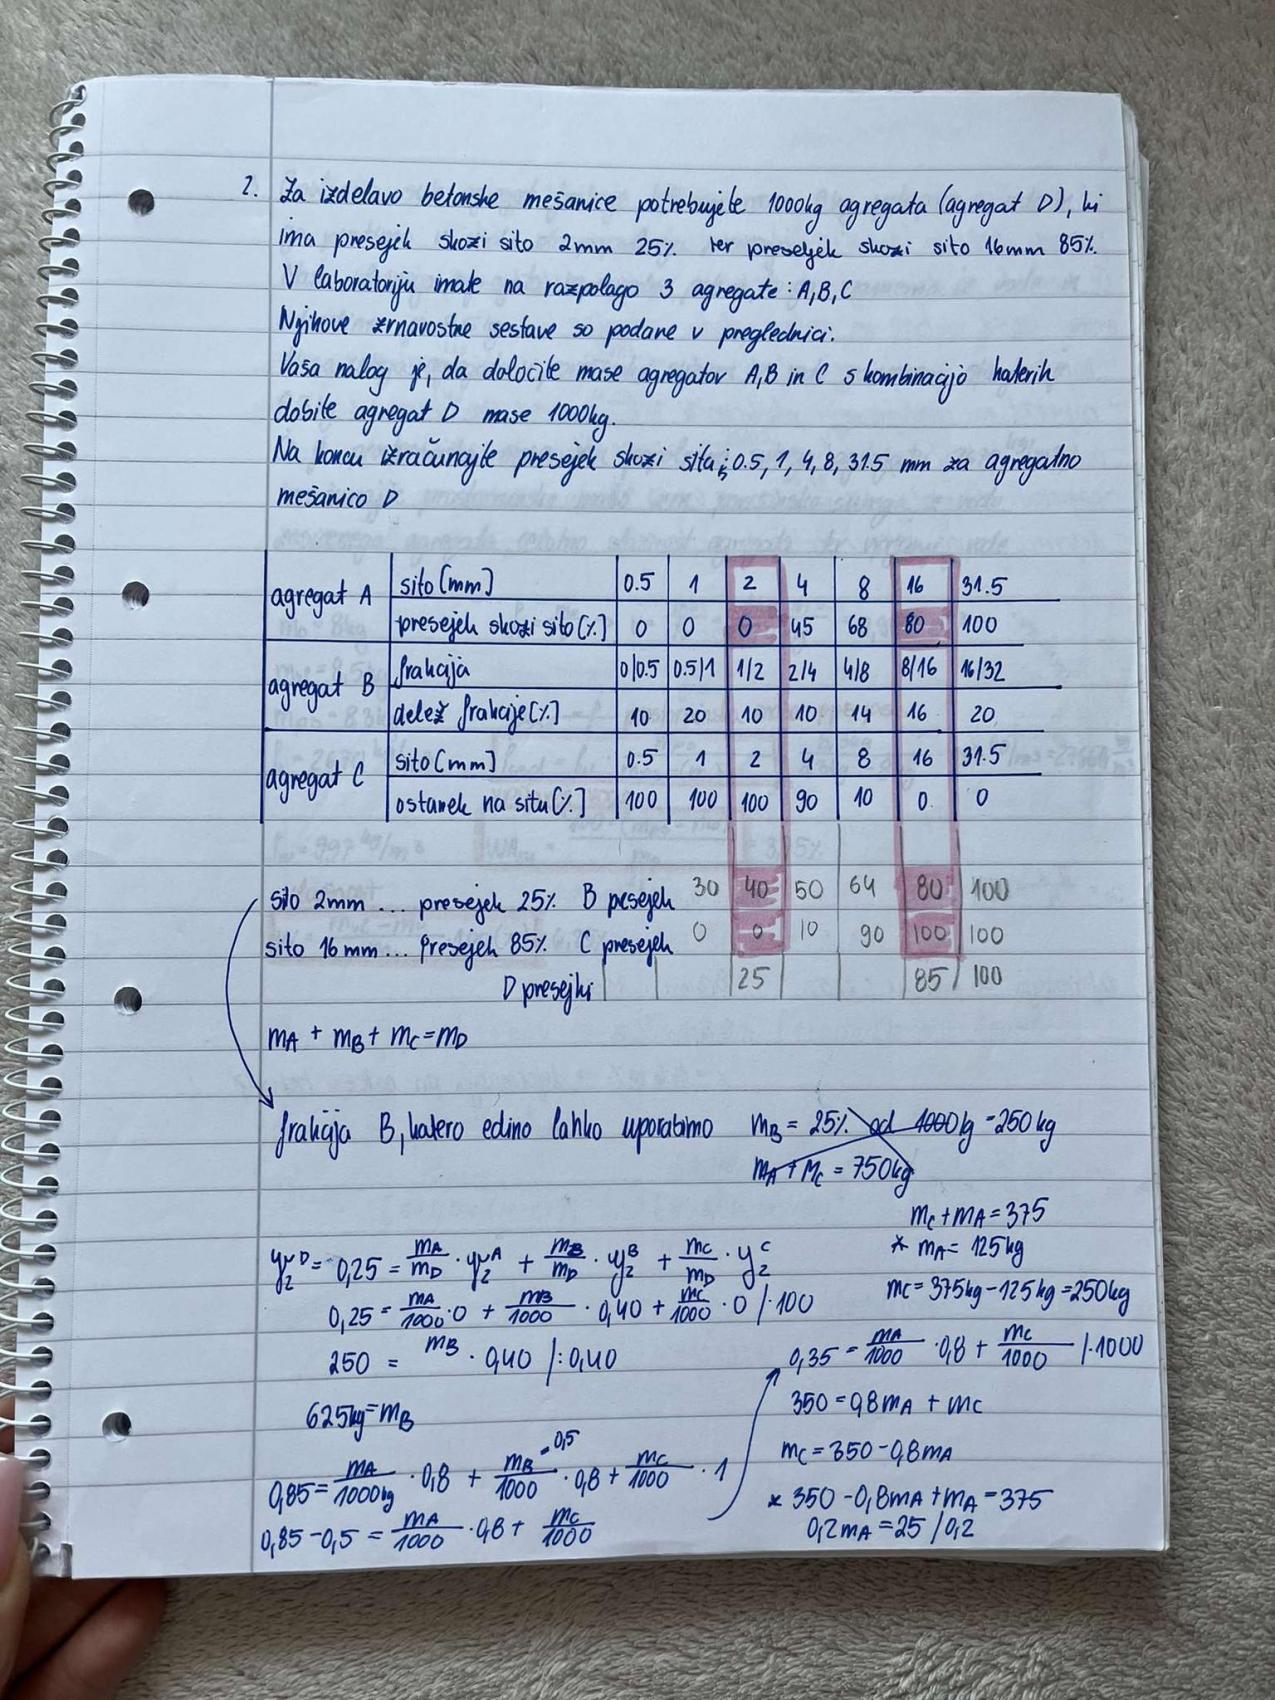 2. Za izdelavo betonske mešanice potrebujete 1000kg agregata (agregat D), ki
ima presejek skozi sito 2mm 25% ter presejek skozi sito 16mm 85%.
V laboratoriju imate na razpolago 3 agregate: A, B, C
Njihove zrnavostne sestave so podane v preglednici.
Vaša nalog je, da določite mase agregatov A, B in C s kombinacijo katerih
dobite agregat D mase 1000kg.
Na koncu izračunajte presejek skozi sita: 0.5, 1, 4, 8, 31.5 mm za agregatno
mešanico D
agregat A sito [mm] 0.5 1 2 4 8 16 31.5
presejek skozi sito [%] 0 0 0 45 68 80 100
agregat B frakcija 0/0.5 0.5/1 1/2 2/4 4/8 8/16 16/32
delež frakcije [%] 10 20 10 10 14 16 20
agregat C sito [mm] 0.5 1 2 4 8 16 31.5
ostanek na situ [%] 100 100 100 90 10 0 0
sito 2mm ... presejek 25% B presejek 30 40 50 64 80 100
sito 16mm ... presejek 85% C presejek 0 0 10 90 100 100
D presejki 25 85 100
mA + mB + mC = mD
frakcija B, katero edino lahko uporabimo mB = 25% od 1000kg = 250kg
mA + mC = 750kg
mC + mA = 375
* mA = 125kg
mC = 375kg - 125kg = 250kg
y2^D = 0,25 = mA/mD · y2^A + mB/mD · y2^B + mC/mD · y2^C
0,25 = mA/1000 · 0 + mB/1000 · 0,40 + mC/1000 · 0 / · 100
250 = mB · 0,40 / : 0,40
625kg = mB
0,85 = mA/1000kg · 0,8 + mB/1000 · 0,8 + mC/1000 · 1
= 0,5
0,85 - 0,5 = mA/1000 · 0,8 + mC/1000
0,35 = mA/1000 · 0,8 + mC/1000 / · 1000
350 = 0,8mA + mC
mC = 350 - 0,8mA
* 350 - 0,8mA + mA = 375
0,2mA = 25 / 0,2